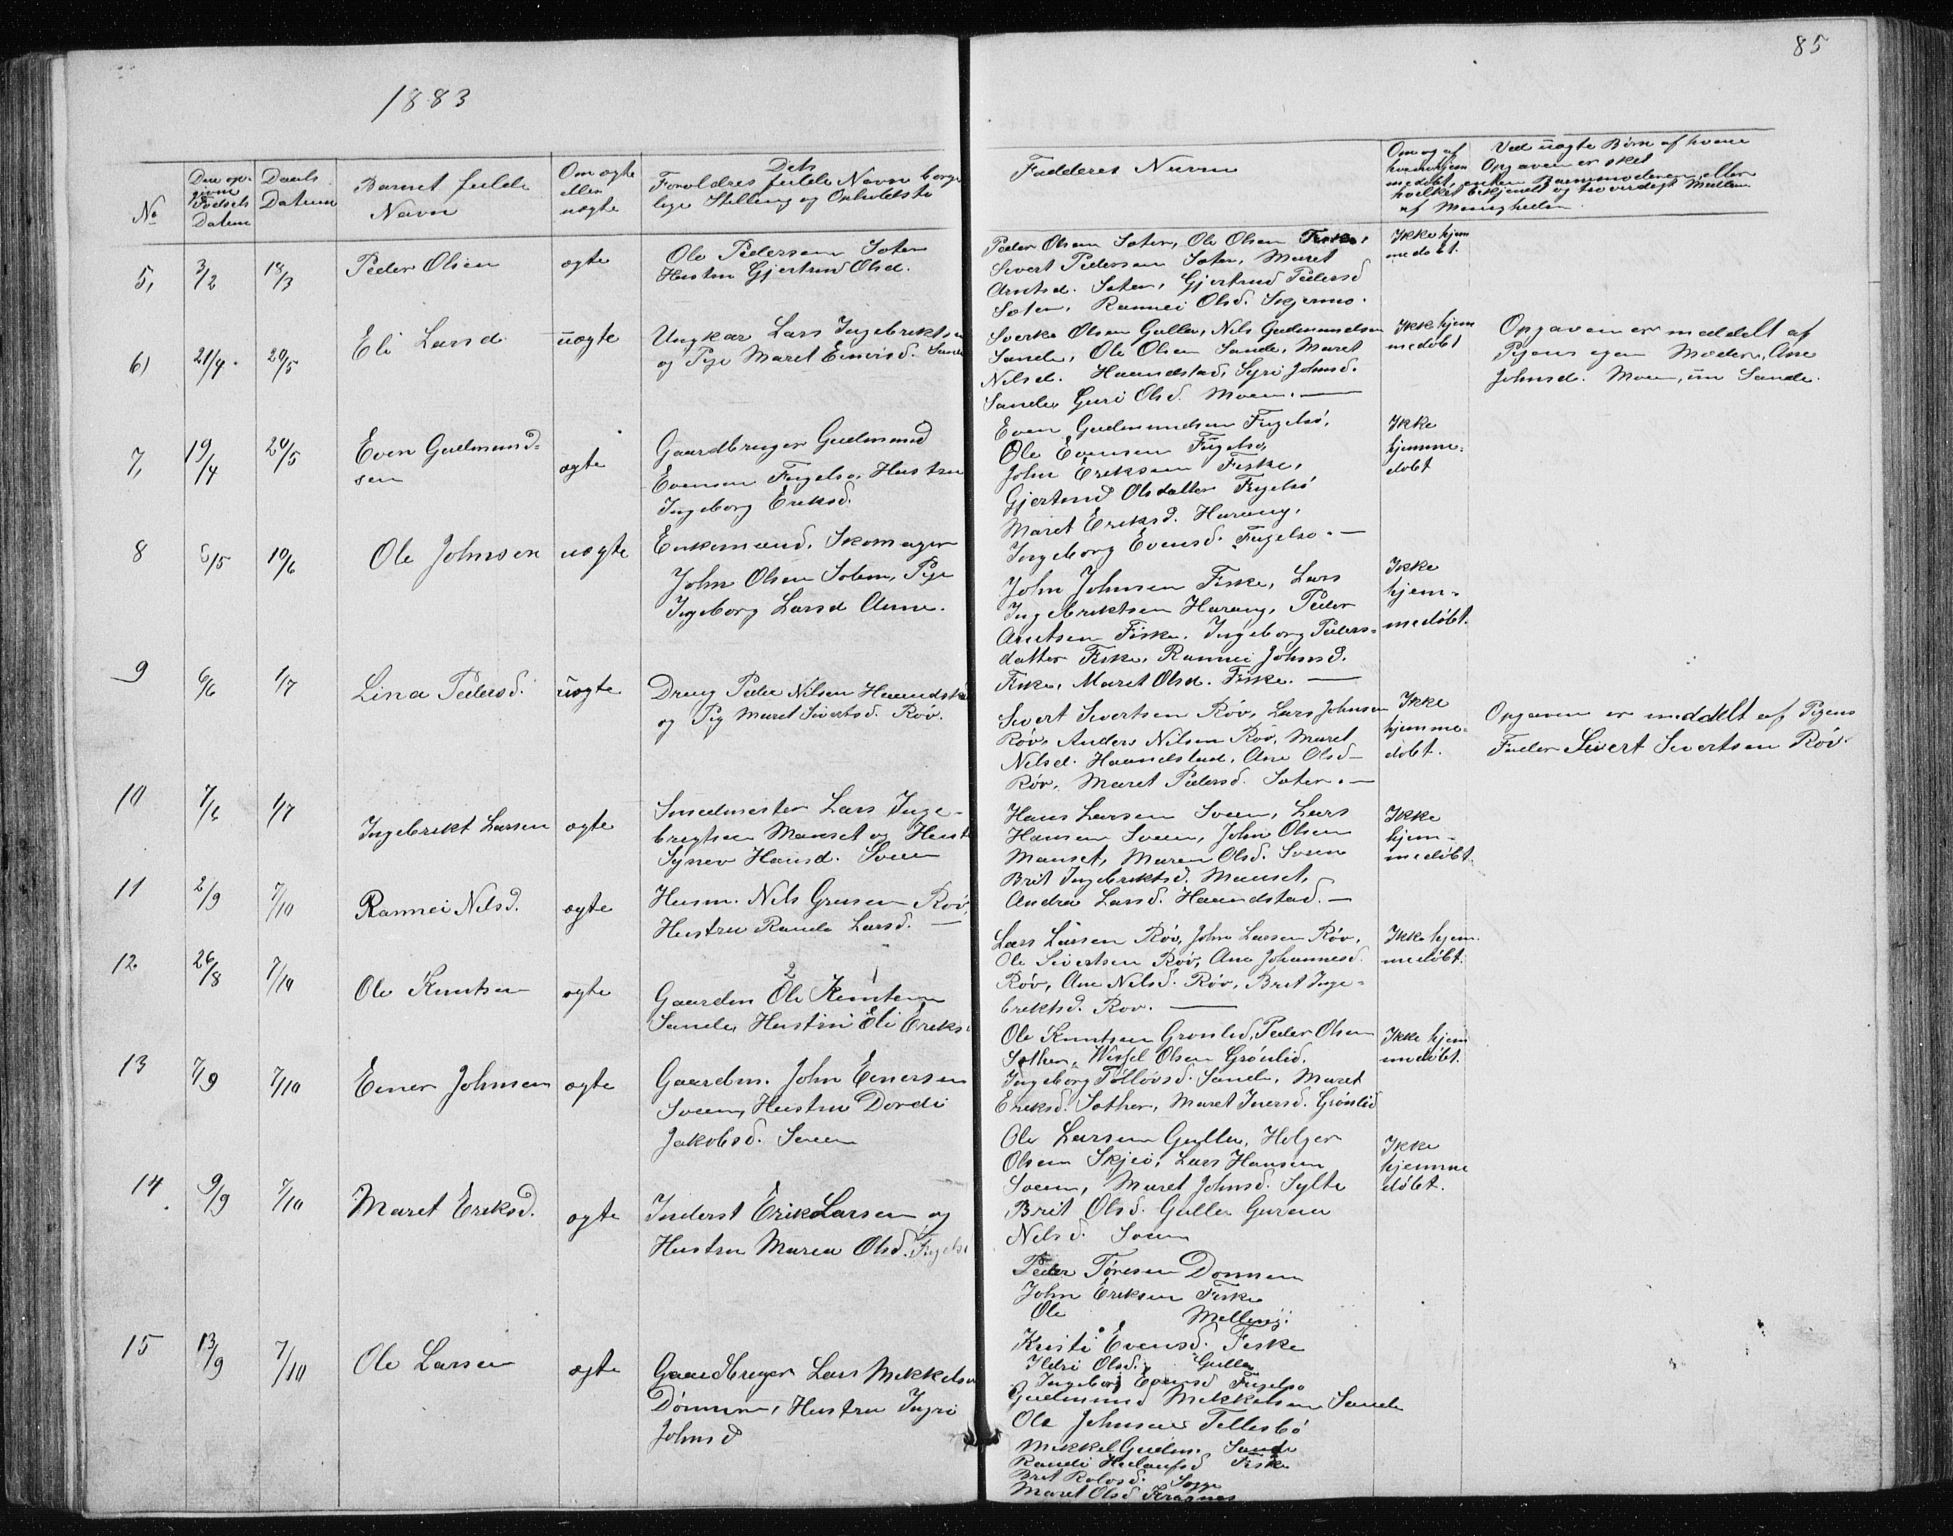 85
1883
No
Den op-
givne
Fødsels
Datum
Daabs
Datum
Barnet fulde
Navn
Om ægte
eller
uægte
Dets
Foreldres fulde Navn borger
lige Stilling og Opholdste
Fadderes Navn
Om og af
hvem hjem
medøbt,
Ved uægte Børn af hvem
Opgaven er sket
enten Barnemoderen, eller
hvilket bekjendt og troverdigt Medlem
af Menigheden.
5,
3/2
18/3
Peder Olsen
ægte
Ole Pedersen Soter
Hustru Gjertrud Olsd.
Peder Olsen Soter, Ole Olsen Fiske,
Sivert Pedersen Soter, Maret
Arntsd. Soter, Gjertrud Pedersd
Soter, Rannei Olsd. Skjermo.
Ikke hjem
medøbt.
6)
21/4.
20/5
Eli Larsd.
uægte
Ungkar Lars Ingebriktsen
og Pige Maret Einersd. Sande
Sverke Olsen Gullen, Nils Gudmundsen
Sande, Ole Olsen Sande, Maret
Nilsd. Haandstad, Syri Johnsd.
Sande, Guri Olsd. Moen. —
Ikke hjem
medøbt
Opgaven er meddelt af
Pigens egen Moder, Ane
Johnsd. Moen, un Sande.
7,
19/4
20/5
Even Gudmund-
sen
ægte
Gaardbruger Gudmund
Evensen Fugelsø, Hustru
Ingeborg Eriksd.
Even Gudmundsen Fugelsø,
Ole Evensen Fugelsø,
John Eriksen Fiske,
Gjertrud Olsdatter Fugelsø
Maret Eriksd. Harang,
Ingeborg Evensd. Fugelsø. —
Ikke
hjemme-
døbt
8
6/5
10/6
Ole Johnsen
uægte
Enkemand. Skomager
John Olsen Solem, Pige
Ingeborg Larsd Aune.
John Johnsen Fiske, Lars
Ingebriktsen Harang, Peder
Arntsen Fiske. Ingeborg Peders-
datter Fiske, Rannei Johnsd.
Fiske, Maret Olsd. Fiske. —
Ikke
hjem-
medøbt.
9
6/6
1/7
Lina Pedersd.
uægte
Dreng Peder Nilsen Haandstad
og Pig Maret Sivertsd. Røv.
Sivert Sivertsen Røv, Lars Johnsen
Røv, Anders Nilsen Røv, Maret
Nilsd. Haandstad, Ane Olsd—
Røv, Maret Pedersd. Soter. —
Ikke
hjemme-
døbt.
Opgaven er meddelt af Pigens
Fader Sivert Sivertsen Røv.
10
7/6
1/7
Ingebrikt Larsen
ægte
Smedmester Lars Inge-
bregtsen Manset og Hust
Synnev Hansd. Sveen
Hans Larsen Sveen, Lars
Hansen Sveen, John Olsen
Manset, Maren Olsd. Sveen
Brit Ingebriktsd. Manset,
Andrea Larsd. Haandstad. —
Ikke
hjem-
medøbt.
11
2/9
7/10
Rannei Nilsd.
ægte
Husm. Nils Gresen Røv,
Hustru Randi Larsd. —
Lars Larsen Røv, John Larsen Røv.
Ole Sivertsen Røv, Ane Johannesd.
Røv, Ane Nilsd. Røv, Brit Inge-
briktsd. Røv. —
Ikke hjem-
medøbt.
12
26/8
7/10
Ole Knutsen
ægte
2 1
Gaardm Ole Knutsen
Sande, Hustru Eli Eriks.
Ole Knutsen Grønlid, Peder Olsen
Søther, Wessel Olsen Grønlid.
Ingeborg Tølløvsd. Sande, Maret
Eriksd. Søther, Maret Iversd. Grønlid
Ikke hjem
medøbt.
13
7/9
7/10
Einer Johnsen
ægte
Gaardm. John Einersen
Sveen, Hustru Dordi
Jakobsd. Sveen
Ole Larsen Gullen, Holger
Olsen Skjei, Lars Hansen
Sveen, Maret Johnsd. Sylte
Brit Olsd. Gullen Guren
Nilsd. Sveen
Ikke
hjemme
døbt.
14.
9/9
7/10
Maret Eriksd.
ægte
Inderst Erik Larsen og
Hustru Maren Olsd. Fugels
Peder Tøresen Dønnem
John Eriksen Fiske
Ole Melling.
Kristi Evensd. Fiske
Ildri Olsd. Gullen
Ingeborg Evensd Fugelsø
15
13/9
7/10
Ole Larsen
ægte
Gaardbruger Lars Mekkelsen
Dønnem, Hustru Ingri
Johnsd
Gudmund Mekkelsen Sande
Ole Johnsen Tellesbø
Mekkel Gudm. Sande
Randi Fiske
Brit Rolvsd. Sogge
Maret Olsd Kragnes